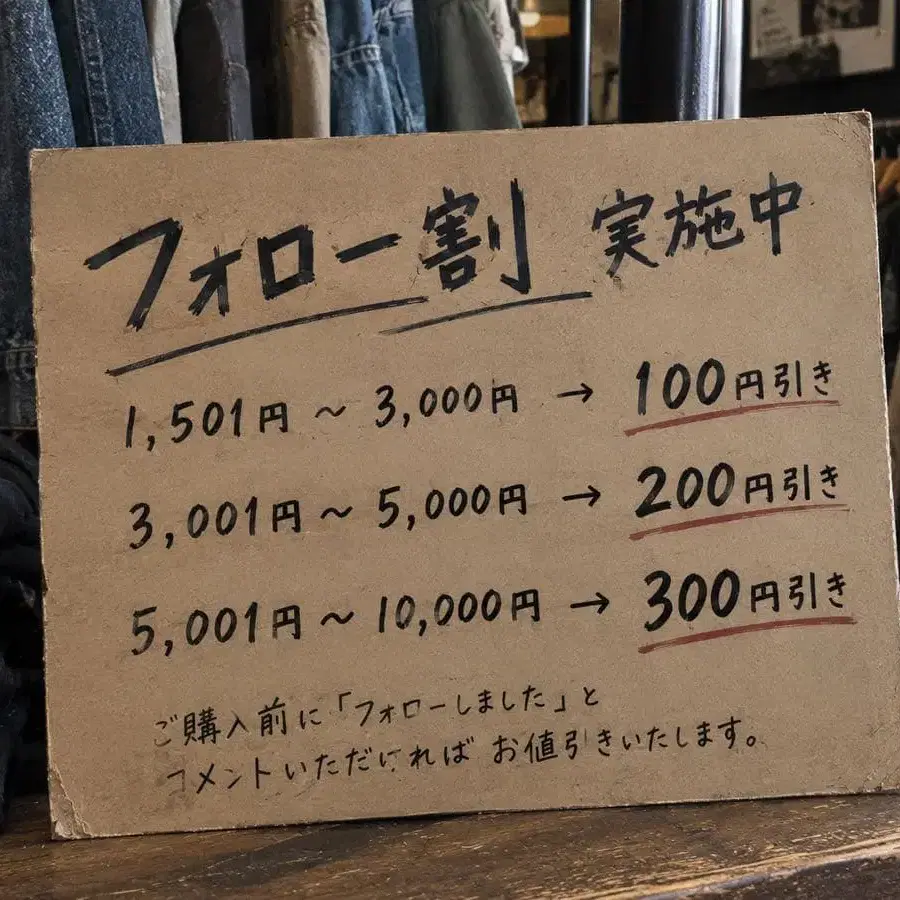 フォロー割 実施中
1,501円 〜 3,000円 → 100円引き
3,001円 〜 5,000円 → 200円引き
5,001円 〜 10,000円 → 300円引き
ご購入前に「フォローしました」と
コメントいただければ お値引きいたします。